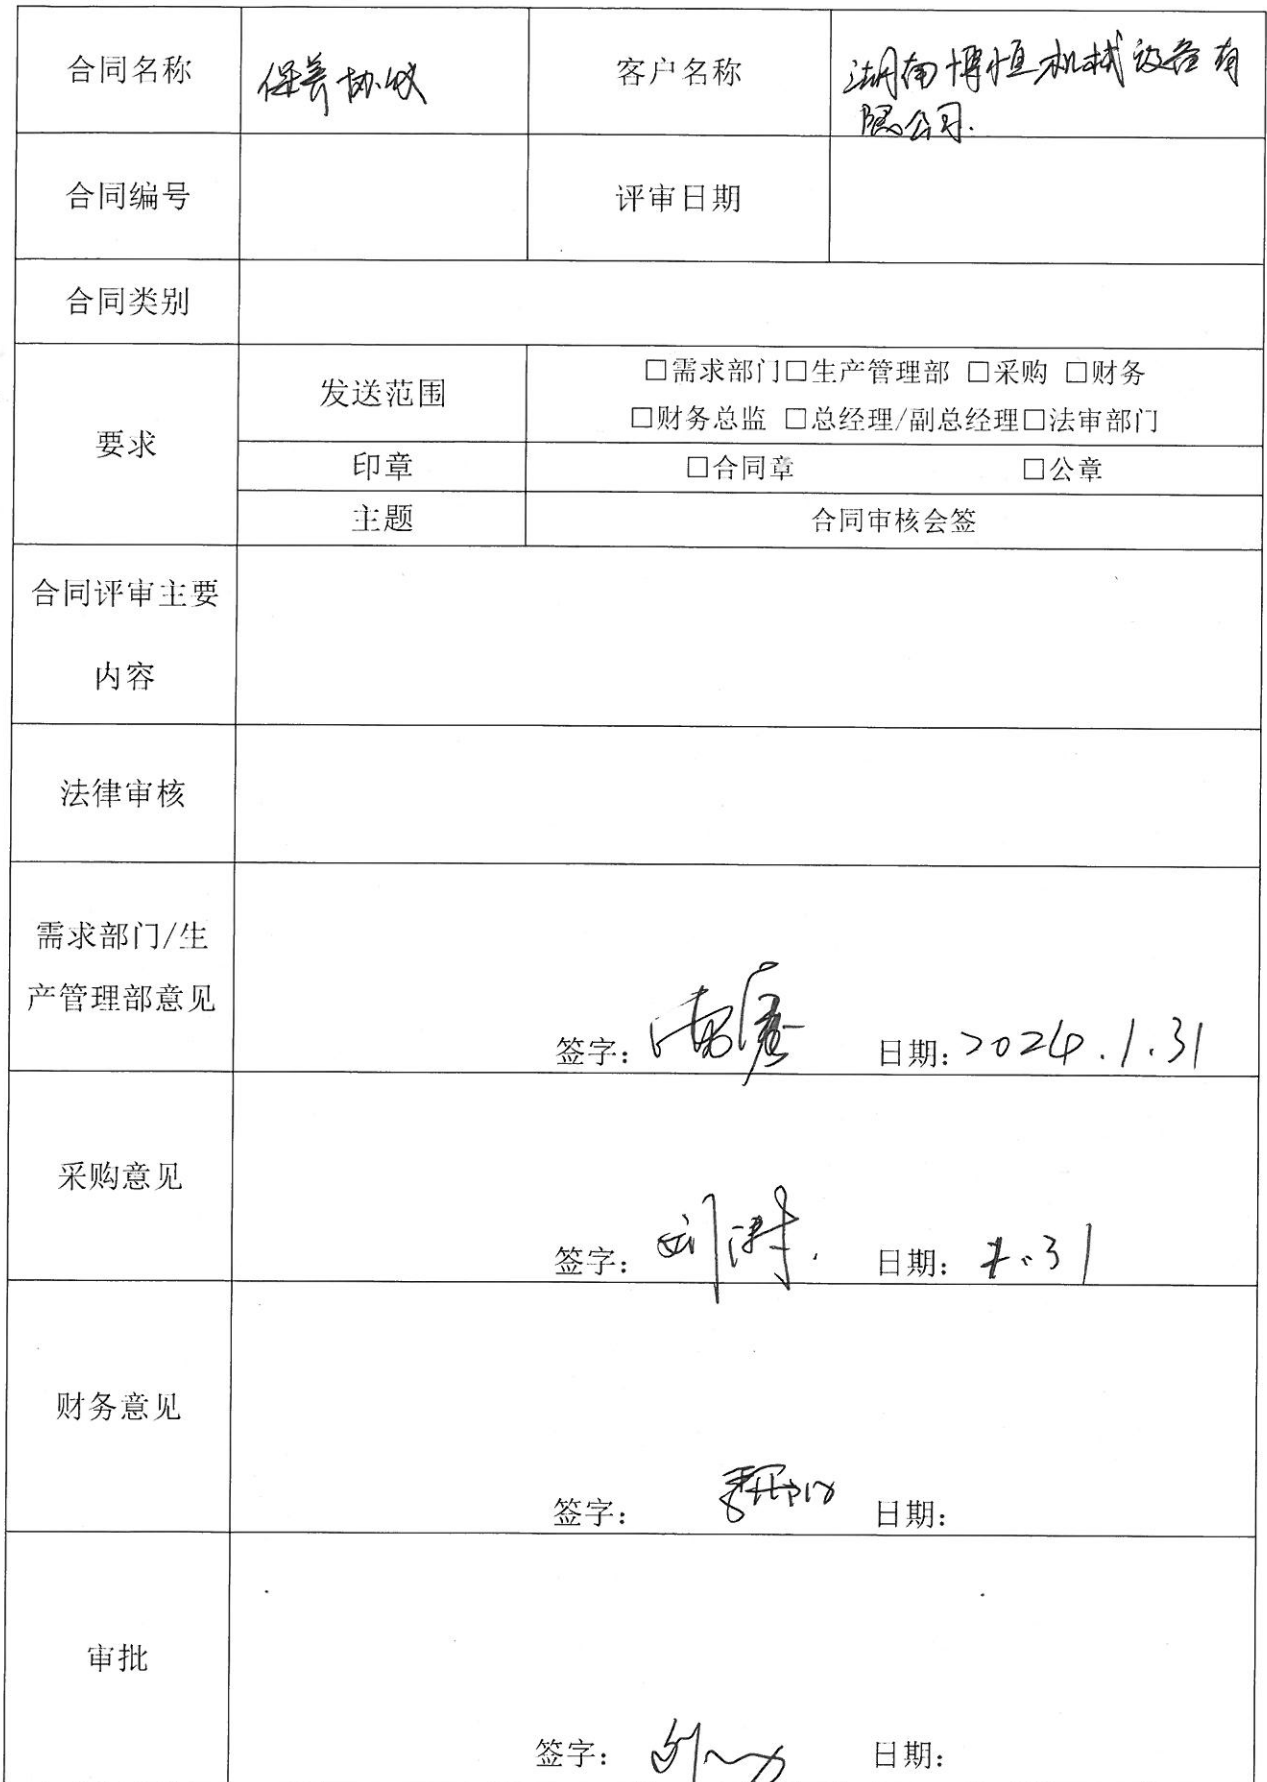 合同名称 保养协议 客户名称 湖南博恒机械设备有
限公司.
合同编号 评审日期
合同类别
要求 发送范围 □需求部门□生产管理部 □采购 □财务
□财务总监 □总经理/副总经理□法审部门
印章 □合同章 □公章
主题 合同审核会签
合同评审主要
内容
法律审核
需求部门/生
产管理部意见
签字: 日期: 2024.1.31
采购意见
签字: 刘 日期: 1.31
财务意见
签字: 日期:
审批
签字: 日期: